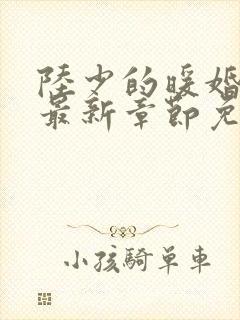 陸少的暖婚
最新章節免
小孩騎單車